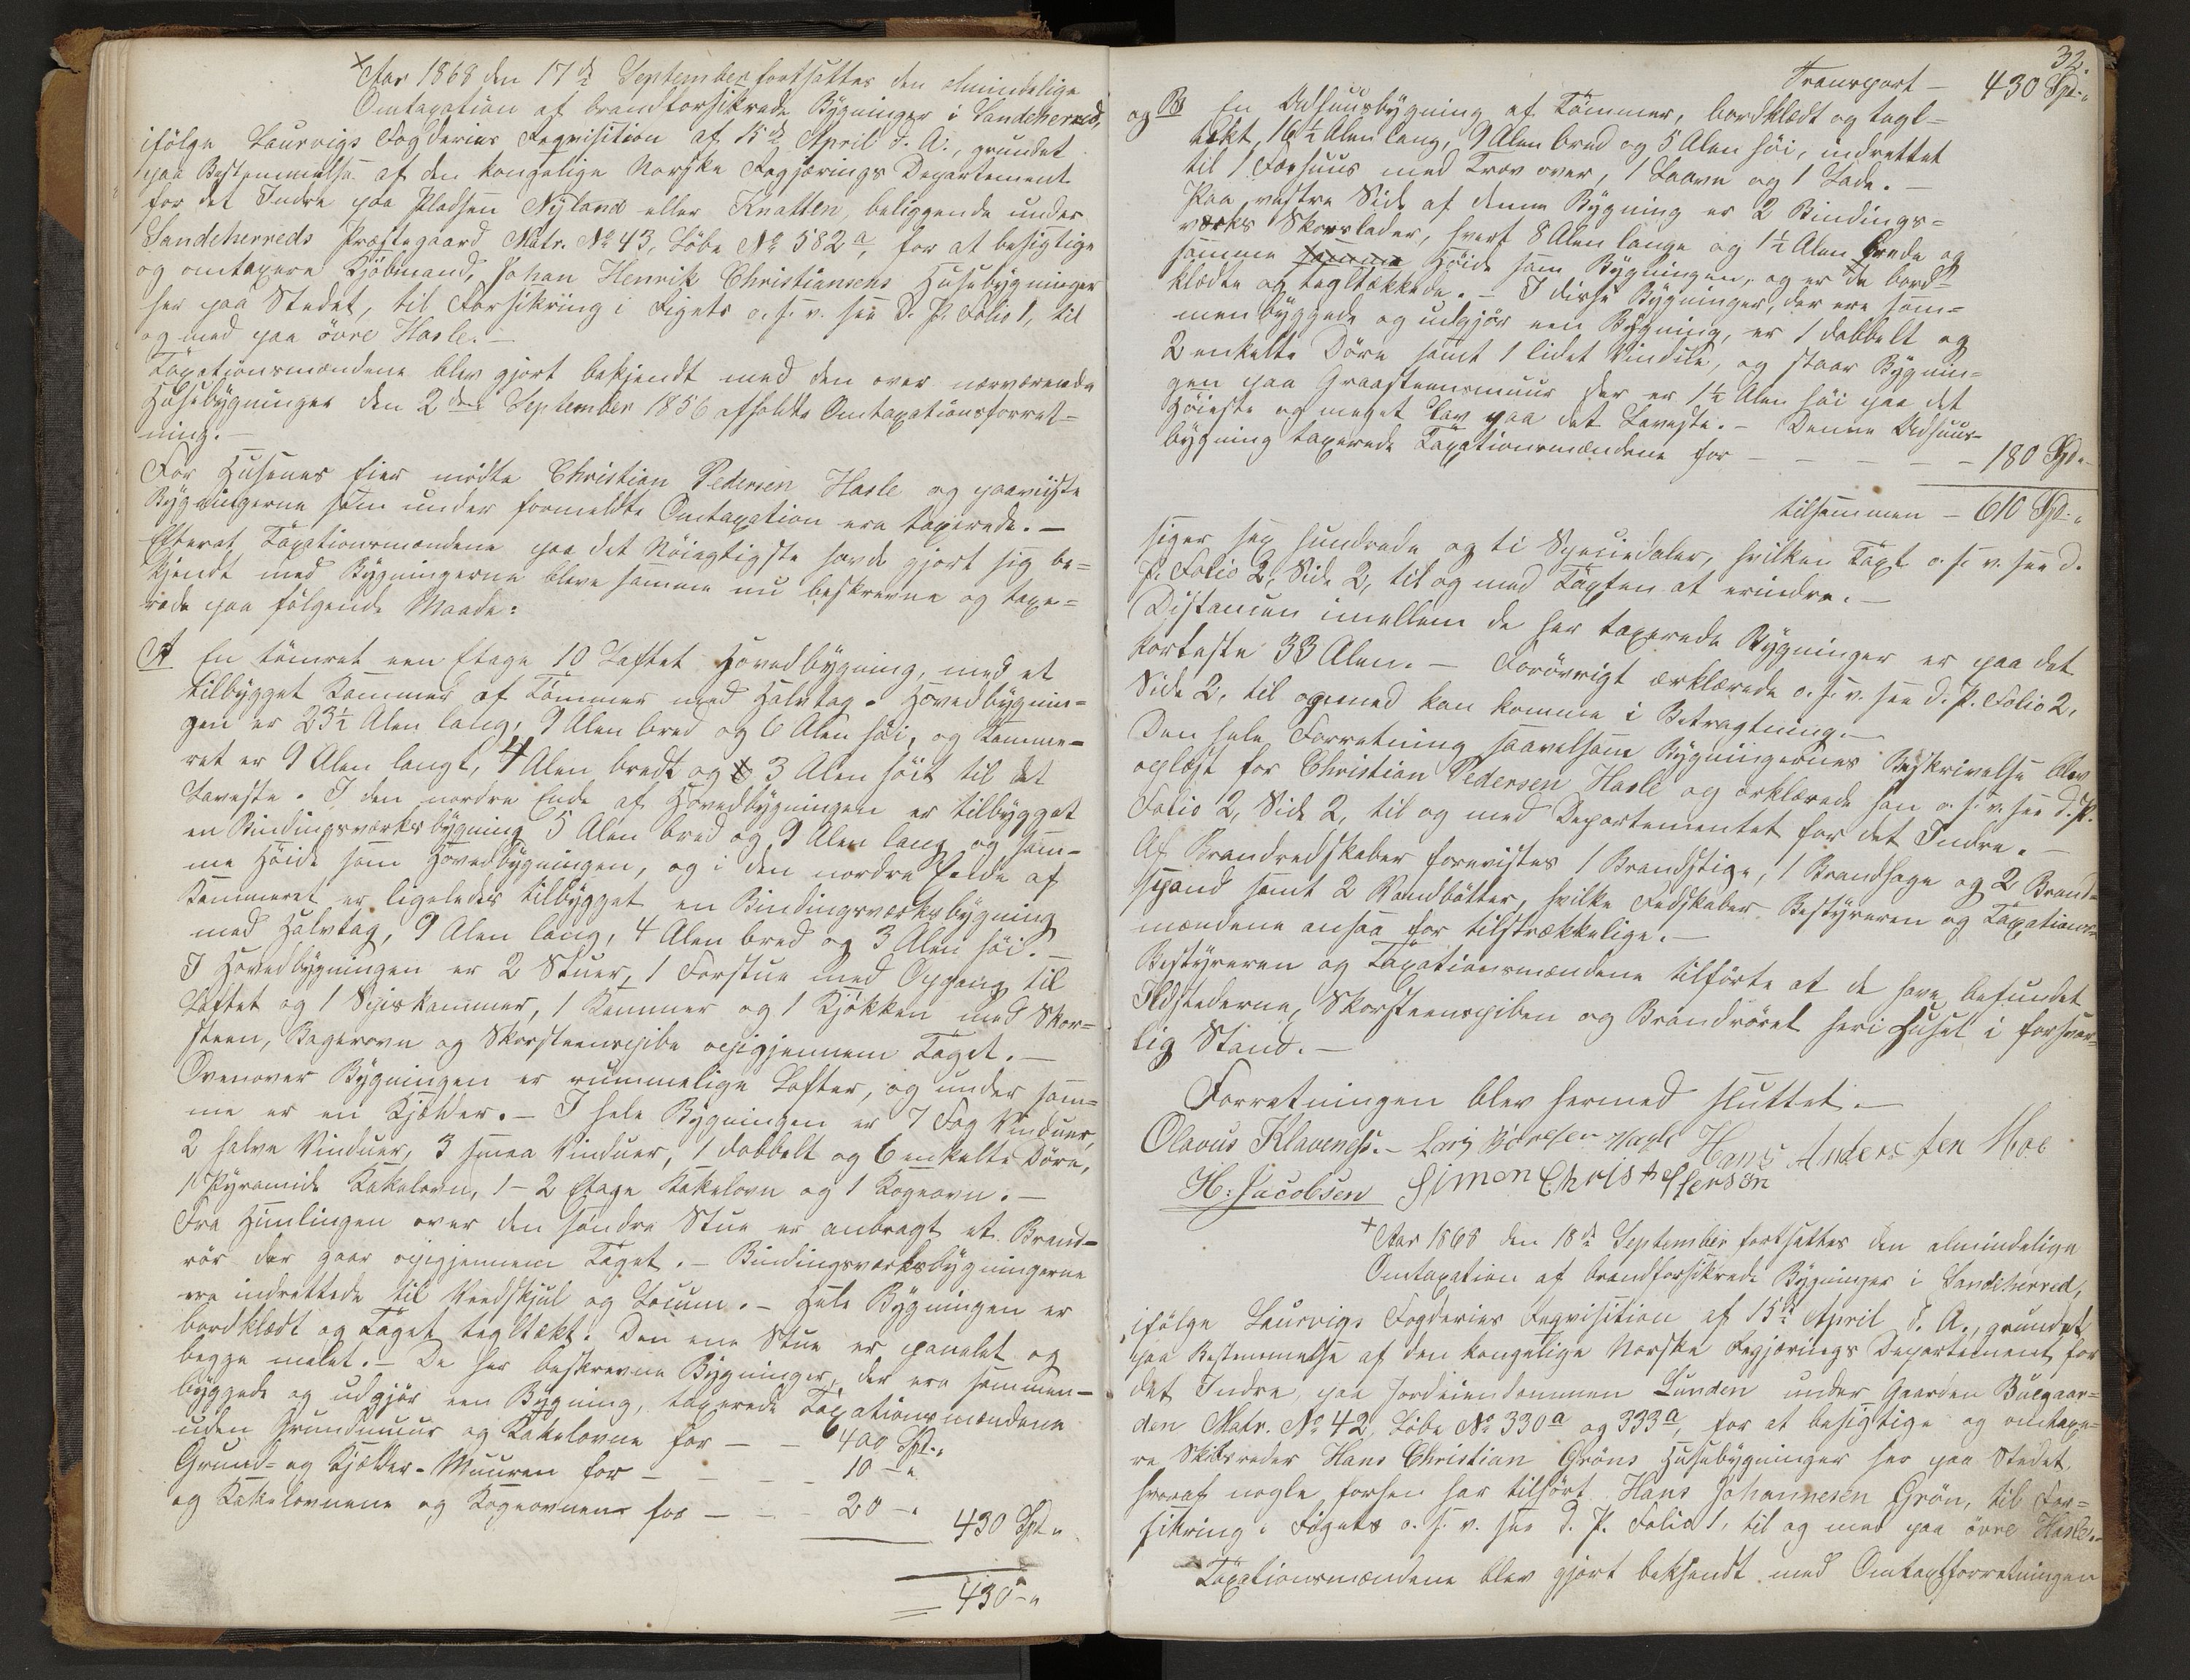 Aar 1868 den 17de September fortsattes den almindelige
Omtaxation af brandforsikrede Bygninger i Sandeherred,
ifölge Laurvigs Fogderies Reqvisition af 15de April d. A., grundet
paa Bestemmelse af den kongelige Norske Regjærings Departement
for det Indre paa Pladsen Nyland eller Knatten, beliggende under
Sandeherreds Præstegaard Matr. No 43, Löbe No 582a, for at besigtige
og omtaxere Kjöbmand, Johan Henrik Christiansens Husebygninger
her paa Stedet, til Forsikring i Rigets o. s. v. see d. P. Folio 1, til
og med paa övre Hasle. –
Taxationsmændene blev gjort bekjendt med den over nærværende
Husebygninger den 2den September 1856 afholdte Omtaxationsforret-
ning. –
For Husenes Eier mödte Christian Pedersen Hasle og paaviiste
Bygningerne som under formeldte Omtaxation ere taxerede. –
Efterat Taxationsmændene paa det Nöiagtigste havde gjort sig be-
kjendt med Bygningerne bleve samme nu beskrevne og taxe-
rede paa fölgende Maade:
A En tömret een Etage 10 Laftet Hovedbygning, med et
tilbygget Kammer af Tömmer med Halvtag. Hovedbygnin-
gen er 23½ Alen lang, 9 Alen bred og 6 Alen höi, og Kamme-
ret er 9 Alen langt, 4 Alen bredt og 3 Alen höit til det
Laveste. I den nordre Ende af Hovedbygningen er tilbygget
en Bindingsværksbygning 5 Alen bred og 9 Alen lang og sam-
me Höide som Hovedbygningen, og i den nordre Ende af
Kammeret er ligeledes tilbygget en Bindingsværksbygning
med Halvtag, 9 Alen lang, 4 Alen bred og 3 Alen höi. –
I Hovedbygningen er 2 Stuer, 1 Forstue med Opgang til
Loftet og 1 Spiskammer, 1 Kammer og 1 Kjökken med Skor-
steen, Bagerovn og Skorsteenspibe opigjennem Taget. –
Ovenover Bygningen er rummelige Lofter, og under sam-
me er en Kjælder. – I hele Bygningen er 7 Fag Vinduer,
2 halve Vinduer, 3 smaa Vinduer, 1 dobbelt og 6 enkelte Döre,
1 Pyramide Kakelovn, 1 – 2 Etage Kakelovn og 1 Kogeovn. –
Fra Himlingen over den söndre Stue er anbragt et Brand-
rör der gaar opigjennem Taget. – Bindingsværksbygningerne
ere indrettede til Vedskjul og Locum. – Hele Bygningen er
bordklædt og Taget tegltækt. Den ene Stue er panelet og
begge malet. – De her beskrevne Bygninger, der ere sammen-
byggede og udgjör een Bygning, taxerede Taxationsmændene
uden Grundmuur og Kakelovne for – – 400 Spd. "
Grund- og Kjælder-Muuren for – – – – 10 – "
og Kakelovnene og Kogeovnen for – – – 20 – "
430 Spd "
430 – "
32.
Transport – 430 Spd. "
og B En Udhuusbygning af Tömmer, bordklædt og tegl-
tækt, 16½ Alen lang, 9 Alen bred og 5 Alen höi, indrettet
til 1 Fæhuus med Trev over, 1 Laave og 1 Lade. –
Paa vestre Side af denne Bygning er 2 Bindings-
værks Skorslader, hvert 8 Alen lange og 1½ Alen brede og
samme samme Höide som Bygningen, og er de bord-
klædte og tegltækkede. – I disse Bygninger, der ere sam-
menbyggede og udgjör een Bygning, er 1 dobbelt og
2 enkelte Döre samt 1 lidet Vindue, og staar Bygnin-
gen paa Graasteensmuur der er 1½ Alen höi paa det
Höieste og meget lav paa det Laveste. – Denne Udhuus-
bygning taxerede Taxationsmændene for – – – – – 180 Spd. "
tilsammen – 610 Spd. "
siger sex hundrede og ti Speciedaler, hvilken Taxt o. s. v. see d.
P. Folio 2, Side 2, til og med Taxten at erindre. –
Distancen imellem de her taxerede Bygninger er paa det
korteste 33 Alen. – Forövrigt erklærede o. s. v. see d. P. Folio 2,
Side 2, til og med kan komme i Betragtning. –
Den hele Forretning saavelsom Bygningernes Beskrivelse blev
oplæst for Christian Pedersen Hasle og erklærede han o. s. v. see d. P.
Folio 2, Side 2, til og med Departementet for det Indre. –
Af Brandredskaber forevistes 1 Brandstige, 1 Brandhage og 2 Brand-
spand samt 2 Vandbötter, hvilke Redskaber Bestyreren og Taxations-
mændene ansaa for tilstrækkelige. –
Bestyreren og Taxationsmændene tilförte at de have befundet
Ildstederne, Skorsteenspiben og Brandröret heri Huset i forsvar-
lig Stand. –
Forretningen blev hermed sluttet. –
Olavus Klavenes. – Hans Andersen Moe
H. Jacobsen Simon Christoffersön
Aar 1868 den 18de September fortsattes den almindelige
Omtaxation af brandforsikrede Bygninger i Sandeherred,
ifölge Laurvigs Fogderies Reqvisition af 15de April d. A., grundet
paa Bestemmelse af den kongelige Norske Regjærings Departement for
det Indre, paa Jordeiendommen Lunden under Gaarden Buegaar-
den Matr. No 42, Löbe No 330a og 333a, for at besigtige og omtaxe-
re Skibsreder Hans Christian Gröns Husebygninger her paa Stedet,
hvoraf nogle forhen har tilhört Hans Johannesen Grön, til For-
sikring i Rigets o. s. v. see d. P. Folio 1, til og med paa övre Hasle. –
Taxationsmændene blev gjort bekjendt med Omtaxtforretningen